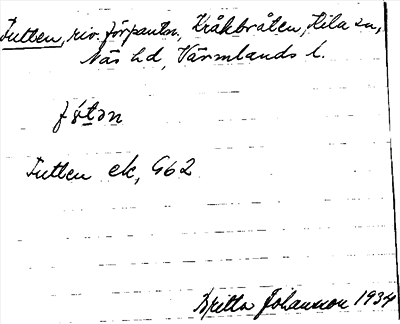 Jutten, riv. förpantn., Kråkbråten, Kila sn,
Näs hd, Värmlands l.
Jutten ek, G62
Britta Johansson 1934